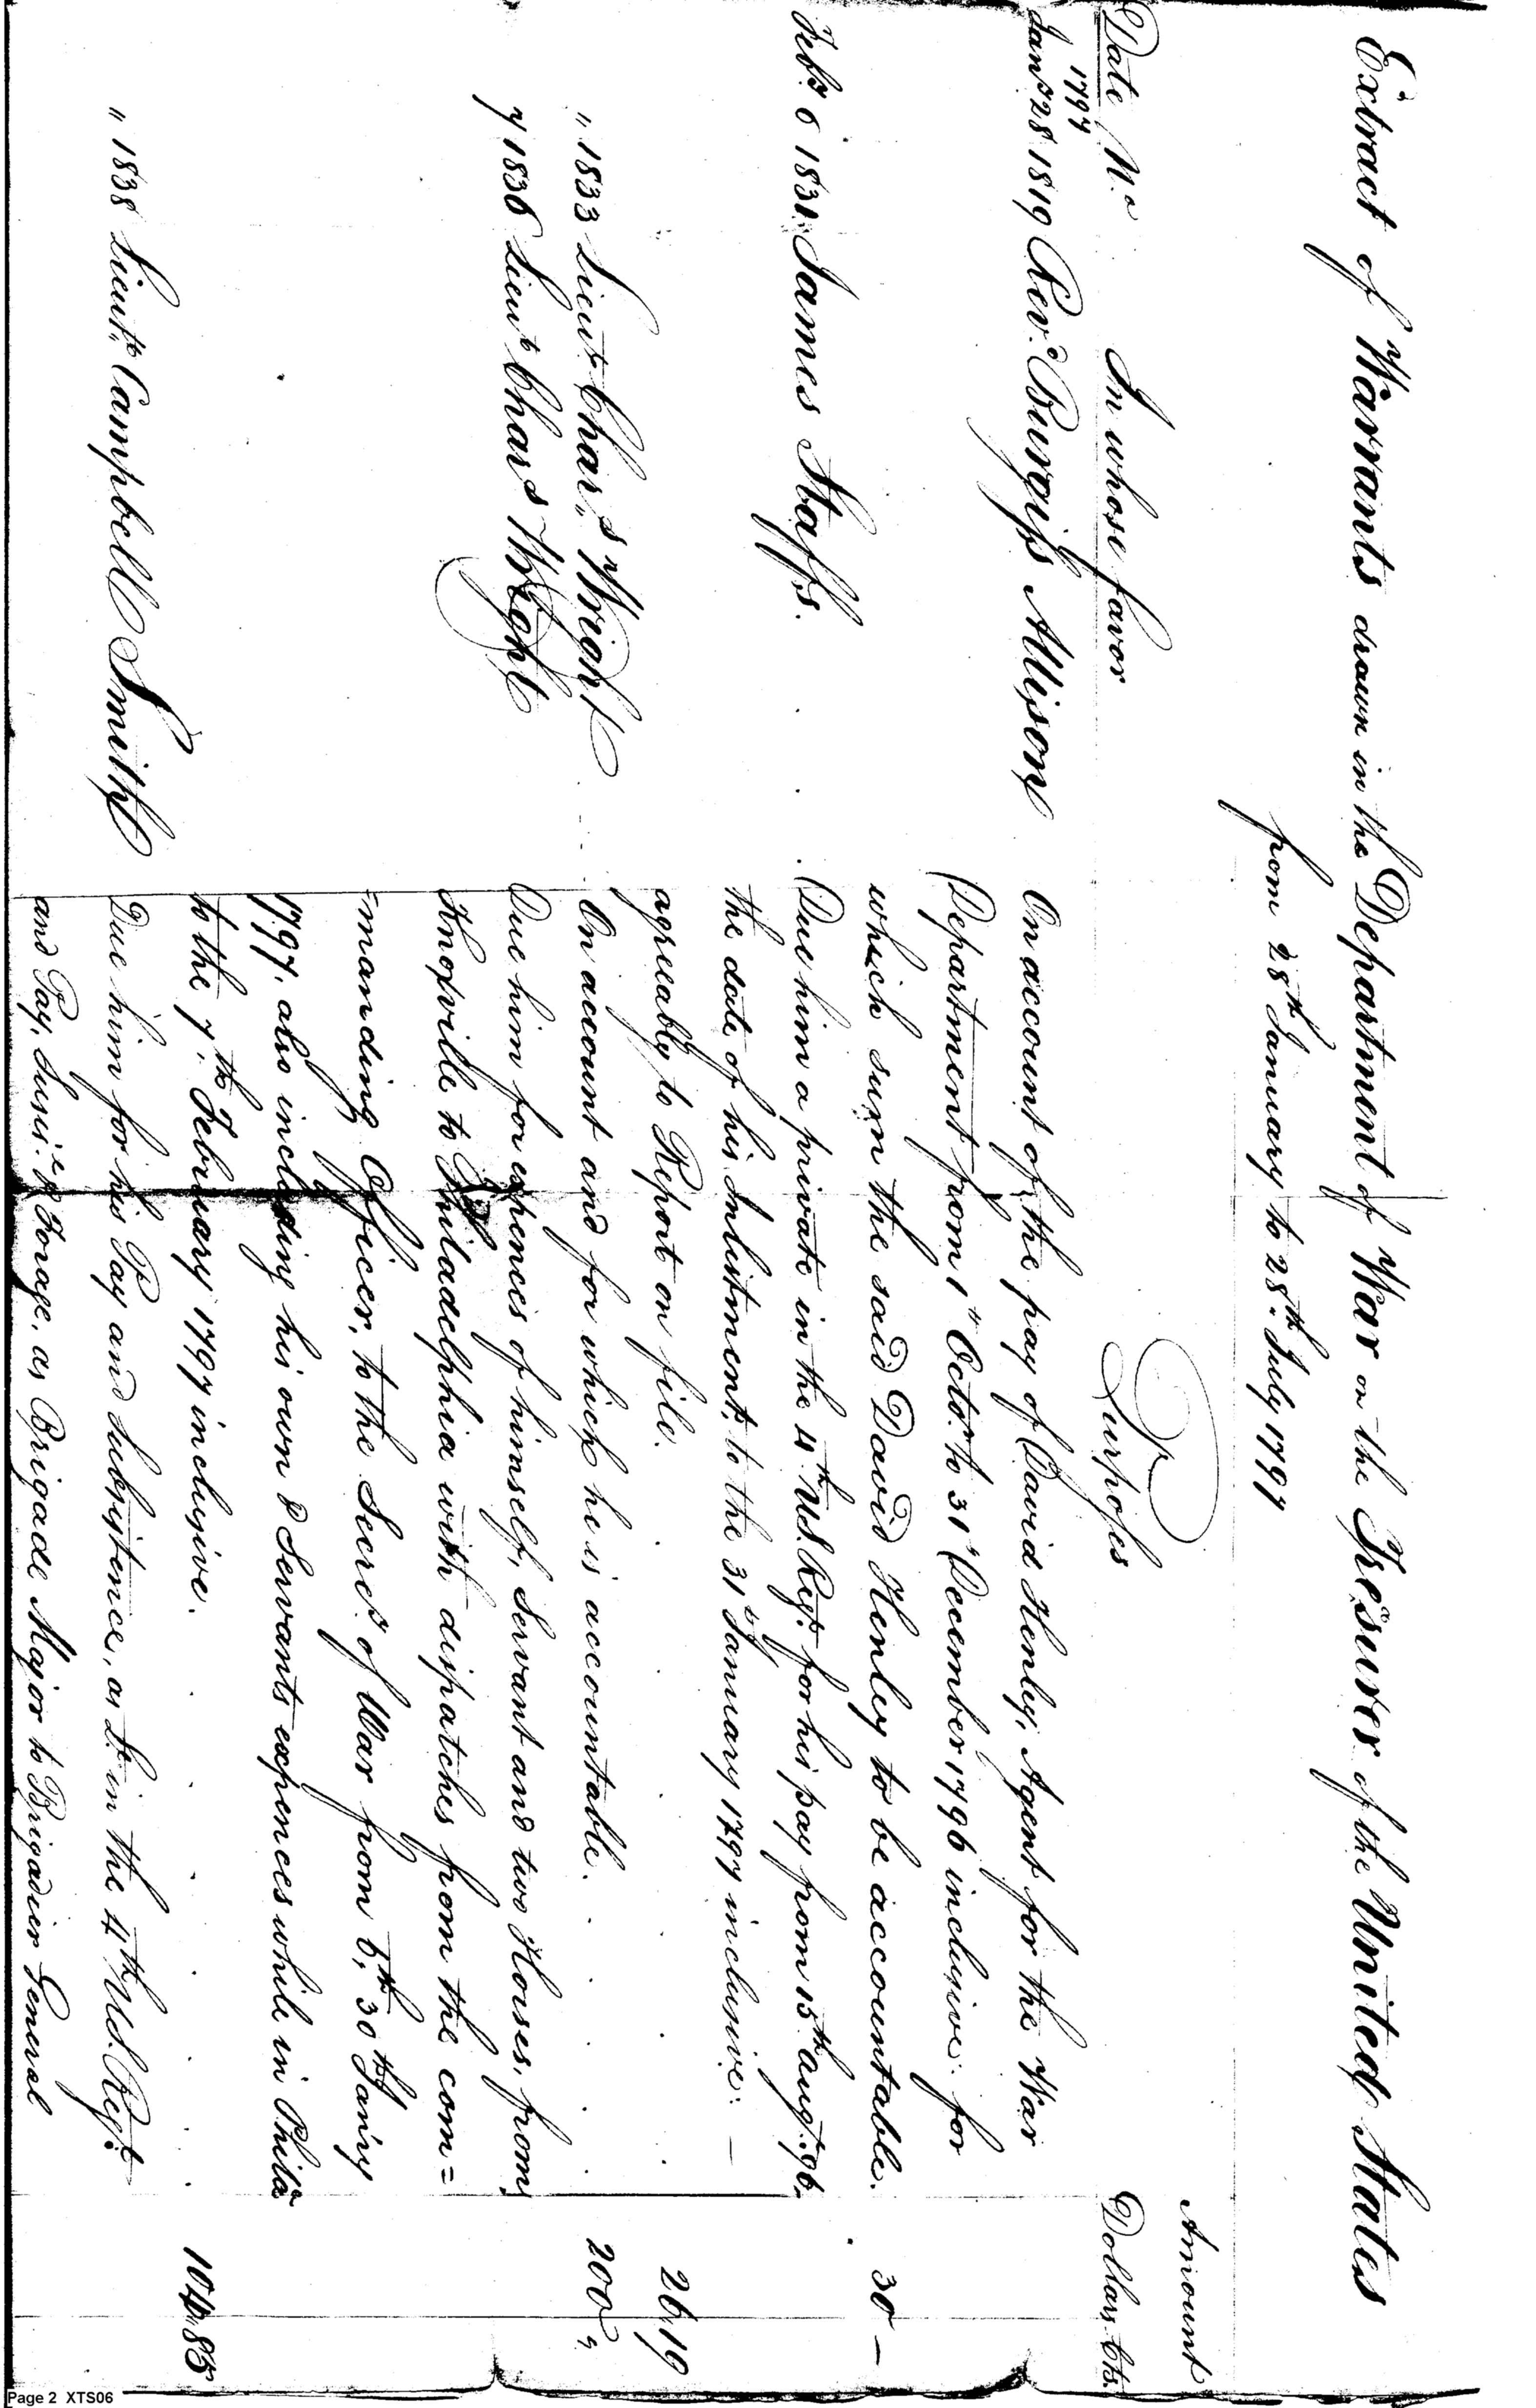 Extract of Warrants drawn in the Department of War on the Tresurer of the United States
from 28th January to 28th July 1797
Amount
Date No In whose favor Purposes Dollars Cts.
1797
Jany 28 1819 Revd. Burgiss Allison On account of the pay of David Henley, Agent for the War
Department from 1st Octor. to 31st December 1796 inclusive. for
which sum the said David Henley to be accountable. 30 —
Feby. 6 1831 James Staffs. Due him a private in the 4th U.S. Regt. for his pay from 15th Augt. 96,
the date of his Inlistment, to the 31st January 1797 inclusive. —
agreeably to Report on file. 26,19
" 1833 Lieut. Chars. Wright On account and for which he is accountable. 200 "
7 1836 Lieut Chars Wright Due him for expences of himself, Servant and two Horses, from
Knoxville to Philadelphia with dispatches from the com=
=manding Officer, to the Secrey. of War from 6th, 30th Jan'y
1797, also including his own & Servants expences while in Phila
to the 7th February 1797 inclusive. 104,85
" 1838 Lieutt. Campbell Smith Due him for his Pay and Subsistence, as Lt. in the 4th U.S. Regt.
and Pay, Forage, as Brigade Major to Brigadier General
Page 2 XTS06